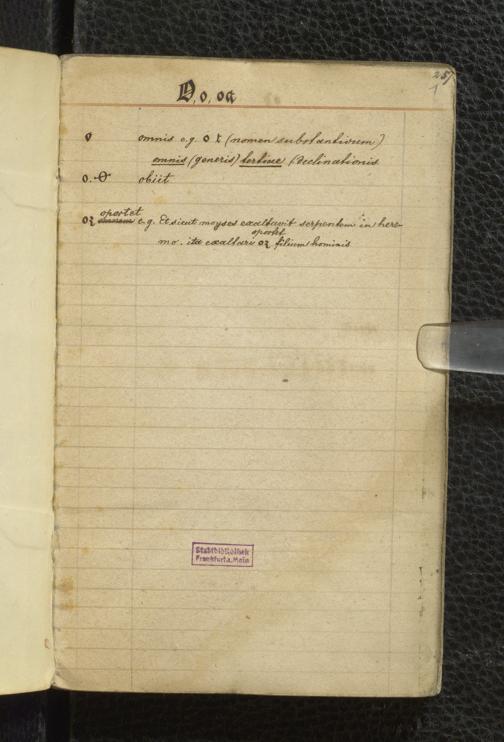 257
O, o, oa
o omnis e.g. o t (nomen substantivum)
omnis (generis) tertiae (declinationis
o. ꝋ obiit
oportet
oꝫ e.g. Et sicut moyses exaltavit serpentem in here-
oportet
mo. ita exaltari oꝫ filium hominis
Stadtbibliothek
Frankfurt a. Main